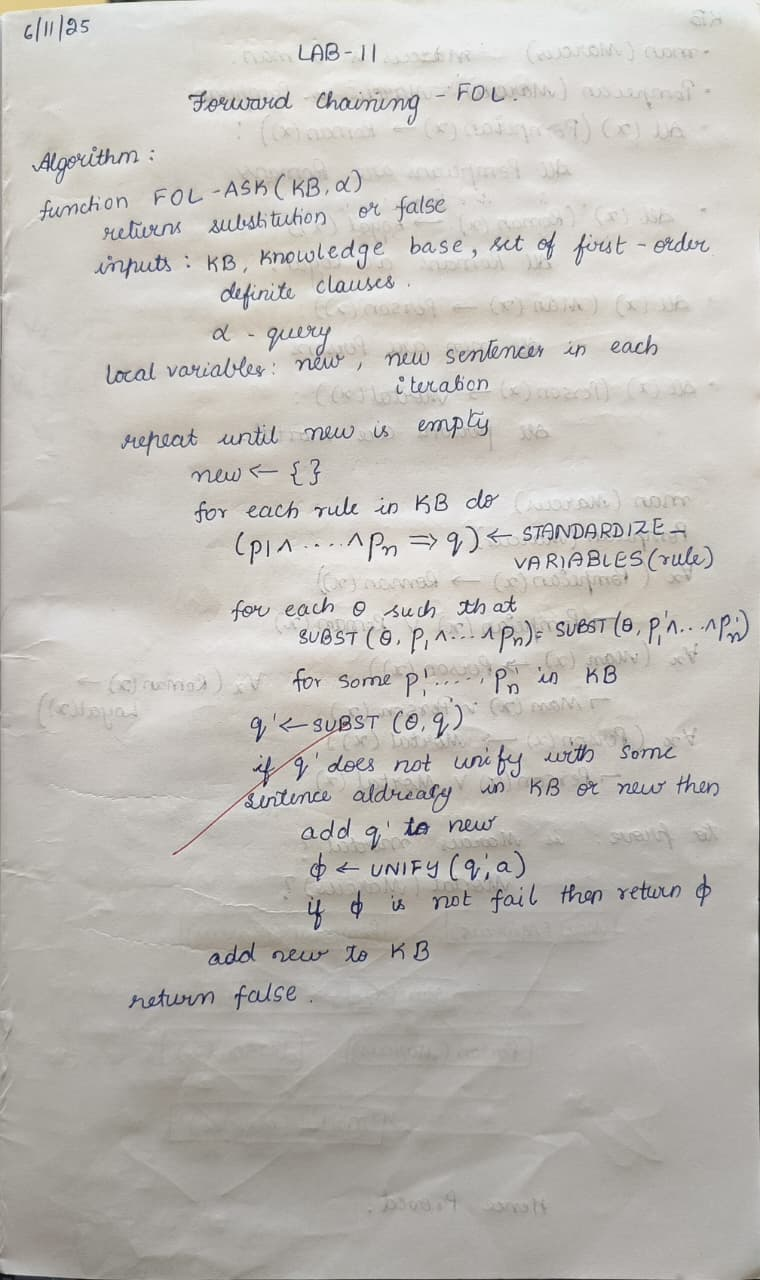 6/11/25
LAB-11
Forward Chaining - FOL.
Algorithm:
function FOL-ASK(KB, α)
returns substitution or false
inputs: KB, Knowledge base, set of first-order
definite clauses.
α - query
local variables: new, new sentences in each
iteration
repeat until new is empty
new ← { }
for each rule in KB do
(p1 ∧ ..... ∧ pn ⇒ q) ← STANDARDIZE-
VARIABLES(rule)
for each θ such that
SUBST (θ, p1 ∧ ... ∧ pn) = SUBST (θ, p1' ∧ ... ∧ pn')
for some p1' ..... pn' in KB
q' ← SUBST (θ, q)
if q' does not unify with some
sentence aldready in KB or new then
add q' to new
ϕ ← UNIFY (q', a)
if ϕ is not fail then return ϕ
add new to KB
return false.